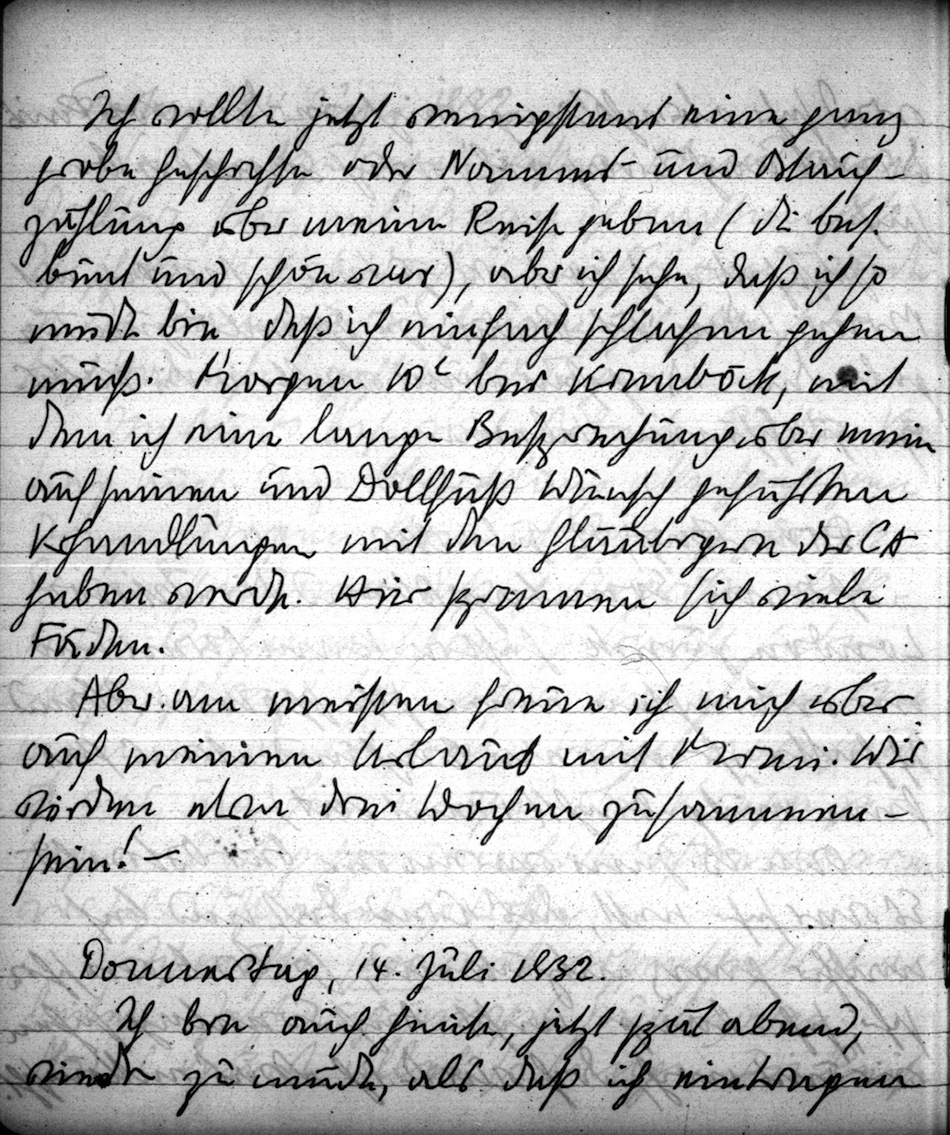 Ich sollte jetzt wenigstens eine ganz
grobe Geschichte oder Namens- und
zählung über meine Reise geben (die
bunt und schön war), aber ich sehe, daß ich so
müde bin daß ich einfach schlafen gehen
muß. Morgen 10 bei Kienböck, mit
dem ich eine lange Besprechung über meine
auf seinen und Dollfuß Wunsch geführten
Verhandlungen mit den Gläubigern der CA
haben werde. Hier spannen sich viele
Fäden.
Aber am meisten freue ich mich aber
auf meinen Urlaub mit Wir
würden etwa drei Wochen zusammen-
sein! –
Donnerstag, 14. Juli 1932.
Ich bin auch heute, jetzt spät abend,
wieder zu müde, als daß ich eintragen